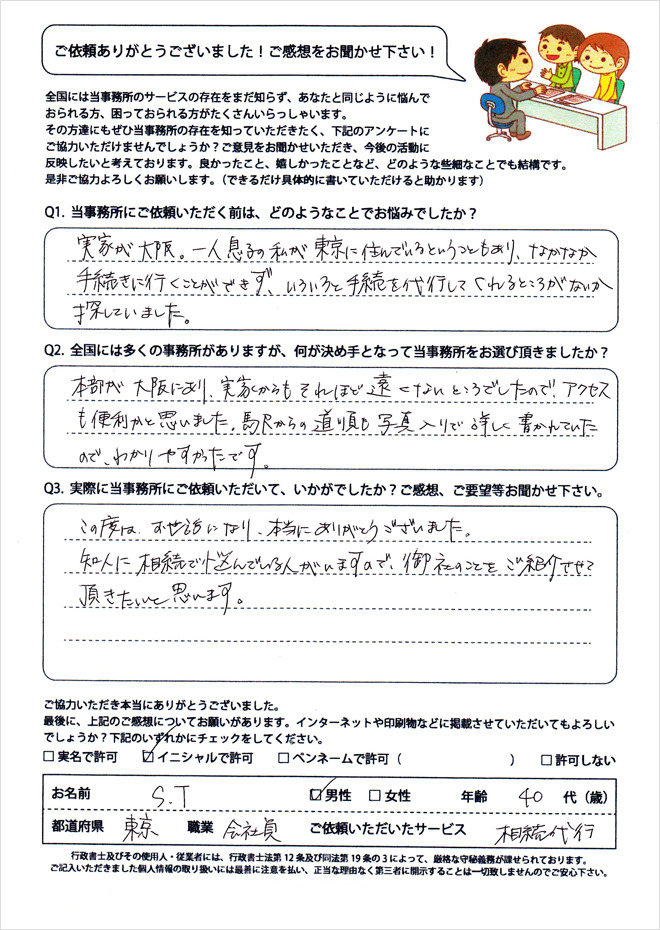 ご依頼ありがとうございました！ご感想をお聞かせ下さい！
全国には当事務所のサービスの存在をまだ知らず、あなたと同じように悩んで
おられる方、困っておられる方がたくさんいらっしゃいます。
その方達にもぜひ当事務所の存在を知っていただきたく、下記のアンケートに
ご協力いただけませんでしょうか？ご意見をお聞かせいただき、今後の活動に
反映したいと考えております。良かったこと、嬉しかったことなど、どのような些細なことでも結構です。
是非ご協力よろしくお願いします。（できるだけ具体的に書いていただけると助かります）
Q1. 当事務所にご依頼いただく前は、どのようなことでお悩みでしたか？
実家が大阪。一人息子の私が東京に住んでいるということもあり、なかなか
手続きに行くことができず、いろいろと手続を代行してくれるところがないか
探していました。
Q2. 全国には多くの事務所がありますが、何が決め手となって当事務所をお選び頂きましたか？
本部が大阪にあり、実家からもそれほど遠くないところでしたので、アクセス
も便利かと思いました。馬尺からの道順も写真入りで詳しく書かれていた
ので、わかりやすかったです。
Q3. 実際に当事務所にご依頼いただいて、いかがでしたか？ご感想、ご要望等お聞かせ下さい。
この度は、お世話になり、本当にありがとうございました。
知人に相続で悩んでいる人がいますので、御社のことをご紹介させて
頂きたいと思います。
ご協力いただき本当にありがとうございました。
最後に、上記のご感想についてお願いがあります。インターネットや印刷物などに掲載させていただいてもよろしい
でしょうか？下記のいずれかにチェックをしてください。
□ 実名で許可 ☑ イニシャルで許可 □ ペンネームで許可（ ） □ 許可しない
お名前 S.T ☑ 男性 □ 女性 年齢 40 代（歳）
都道府県 東京 職業 会社員 ご依頼いただいたサービス 相続代行
行政書士及びその使用人・従業者には、行政書士法第12条及び同法第19条の3によって、厳格な守秘義務が課せられております。
ご記入いただきました個人情報の取り扱いには最善に注意を払い、正当な理由なく第三者に開示することは一切致しませんのでご安心下さい。